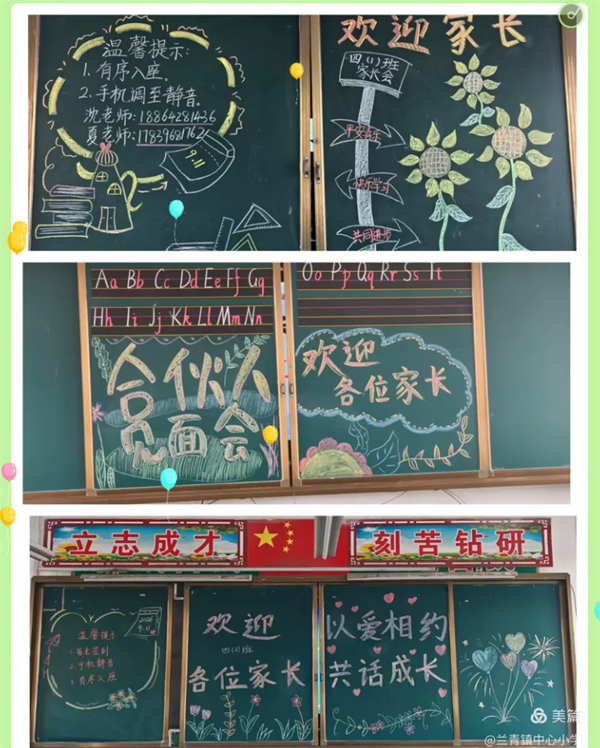 温馨提示:
1.有序入座。
2.手机调至静音。
沈老师:18864281436
夏老师:17839681762
9.11
欢迎家长
四(1)班
家长会
平安喜乐
快乐学习
共同进步
Aa Bb Cc Dd Ee Ff Gg
Hh Ii Jj Kk Ll Mm Nn
合伙人
见面会
Oo Pp Qq Rr Ss Tt
欢迎
各位家长
立志成才
刻苦钻研
温馨提示
2.手机静音
3.有序入座
9.11
欢迎
各位家长
以爱相约
共话成长
美篇
@兰青镇中心小学